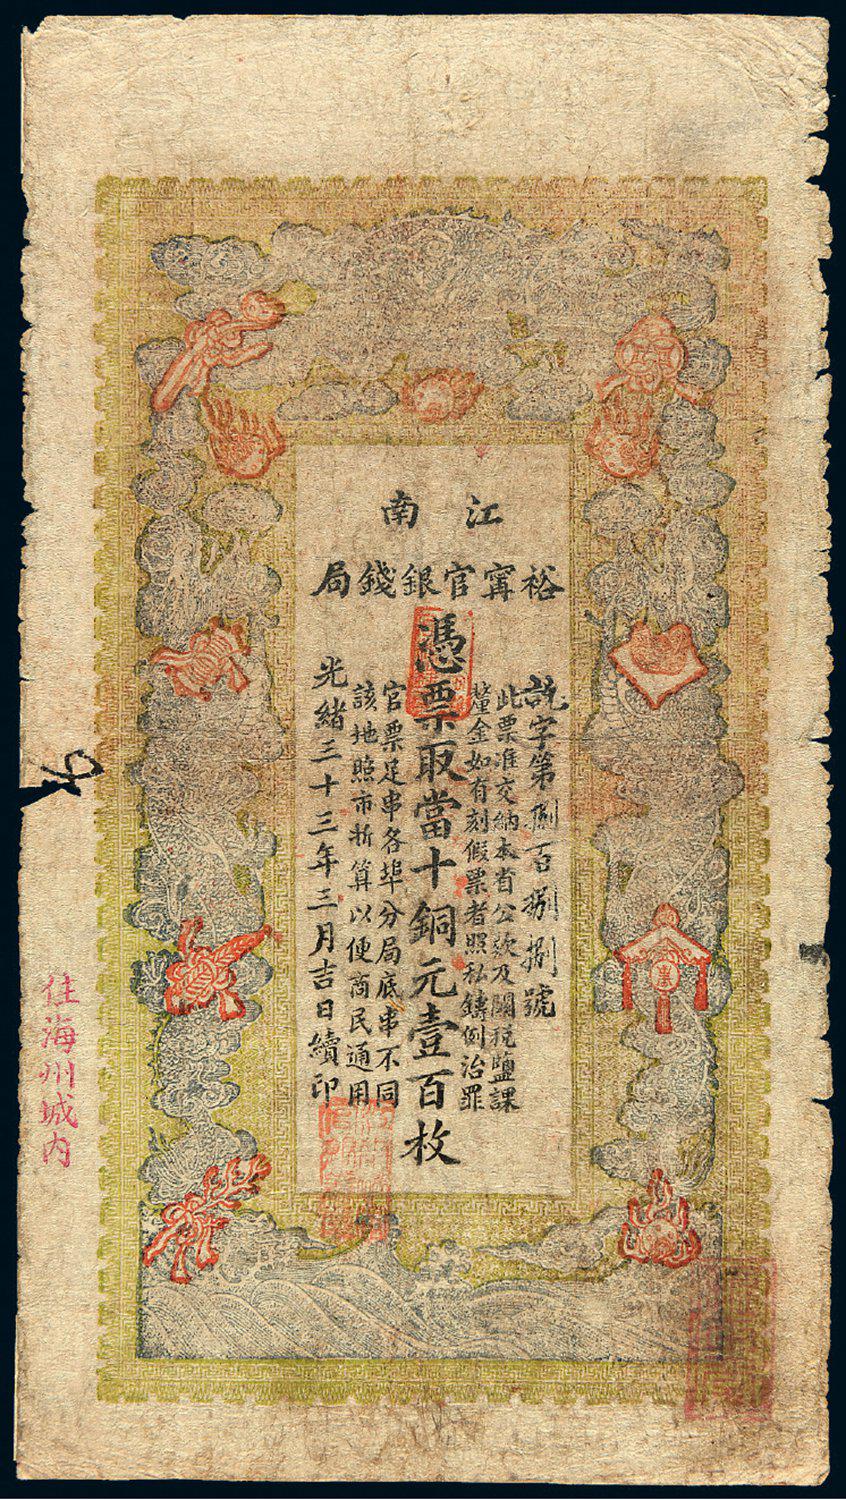 江南
裕甯官銀錢局
說字第捌百捌捌號
此票准交納本省公款及關稅鹽課
釐金如有刻假票者照私鑄例治罪
憑票取當十銅元壹百枚
官票足串各埠分局底串不同
該地照市折算以便商民通用
光緒三十三年三月吉日續印
住海州城內